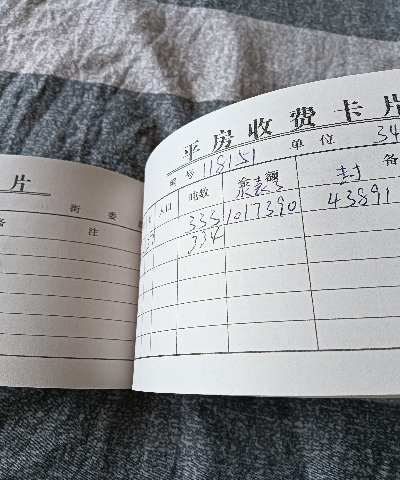 片
街 委
备 注
平房收费卡片
号 118151 单 位 34
人口 吨数 金额 备
泉表号 封
333 1017390 43891
334